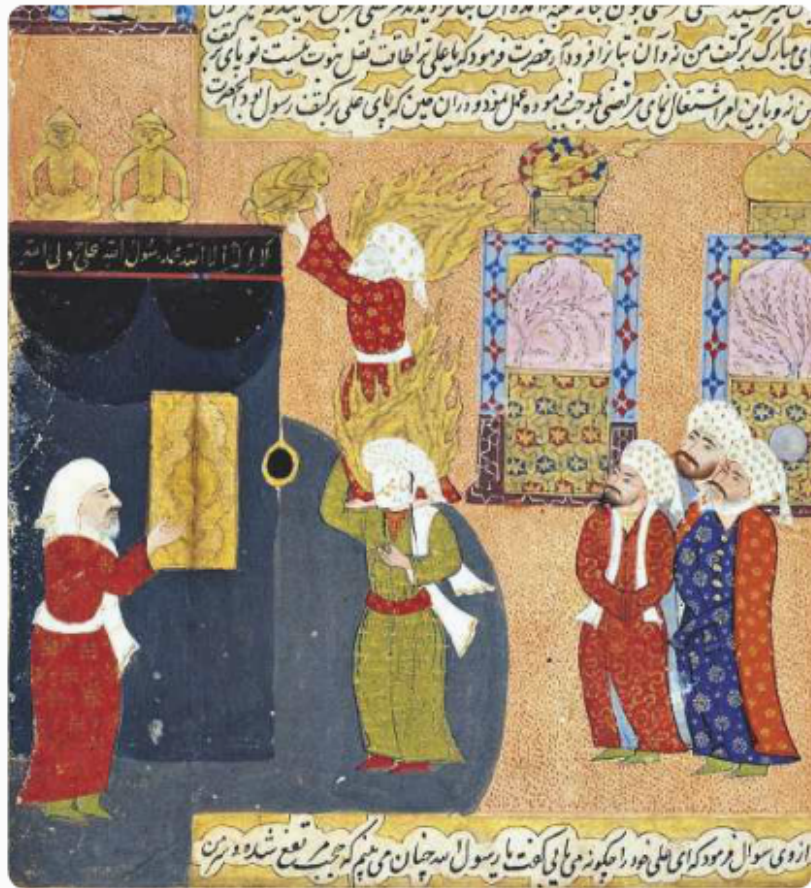 ی مبارک بر کتف من نه و آن بتانرا فرود آر حضرت فرمود که یا علی ترا طاقت ثقل نبوت نیست تو پای بر کتف
من نه و باین امر اشتغال نمای مرتضی بموجب فرموده عمل نمود و دران حین که پای علی بر کتف رسول بود آنحضرت
لا اله الا الله محمد رسول الله علی ولی الله
از وی سوال فرمود که ای علی خود را چگونه می یابی گفت یا رسول الله چنان می بینم که حجب مرتفع شده و سر من